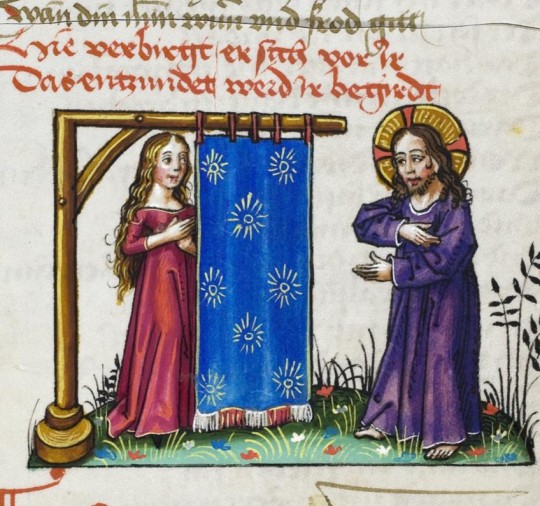 wan din min wird vnd frod gill
Hie verbirgt er sich vor Ir
Das entzundet werd ir begirdt